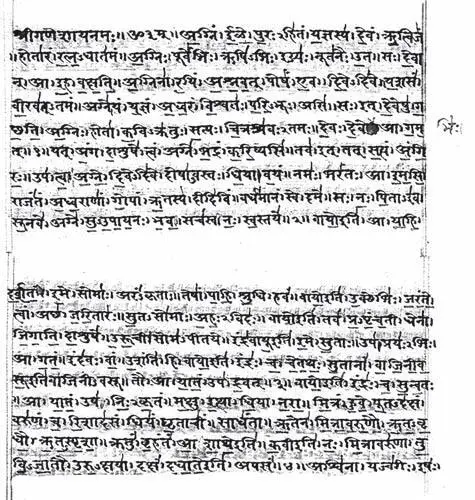 श्रीगणेशायनमः॥ॐ३म्॥अग्निं।ईळे।पुरःऽहितं।यज्ञस्य।देवं।ऋत्विजं
।होतारं।रत्नऽधातमं॥अग्निः।पूर्वेभिः।ऋषिऽभिः।ईड्यः।नूतनैः।उत।सः।देवा
न्।आ।इह।वक्षति॥अग्निना।रयिं।अश्नवत्।पोषं।एव।दिवेऽदिवे।यशसं
।वीरवत्ऽतमं॥अग्ने।यं।यज्ञं।अध्वरं।विश्वतः।परिऽभूः।असि।सः।इत्।देवेषु।ग
च्छति॥अग्निः।होता।कविऽक्रतुः।सत्यः।चित्रश्रवःऽतमः।देवः।देवे।आ।गम
भिः
त्॥१॥यत्।अंग।दाशुषे।त्वं।अग्ने।भद्रं।करिष्यसि।तव।इत्।तत्।सत्यं।अंगि
रः॥उप।त्वा।अग्ने।दिवेऽदिवे।दोषाऽवस्तः।धिया।वयं।नमः।भरंतः।आ।इमसि॥
राजंतं।अध्वराणां।गोपां।ऋतस्य।दीदिविं।वर्धमानं।स्वे।दमे॥सः।नः।पिताऽइव।
सूनवे।अग्ने।सुऽउपायनः।भव।सचस्व।नः।स्वस्तये॥२॥वायोइति।आ।याहि।
दर्शत।इमे।सोमाः।अरंऽकृताः।तेषां।पाहि।श्रुधि।हवं॥वायोइति।उक्थेभिः।जरंते।
त्वां।अच्छ।जरितारः।सुतऽसोमाः।अहःऽविदः॥वायोइति।तव।प्रऽपृंचती।धेना
।जिगाति।दाशुषे।उरूची।सोमऽपीतये॥इंद्रवायूइति।इमे।सुताः।उप।प्रयःऽभिः।
आ।गतं।इंदवः।वां।उशंति।हि॥वायोइति।इंद्रः।च।चेतथः।सुतानां।वाजिनीव
सूइतिवाजिनीऽवसू।तौ।आ।यातं।उप।द्रवत्॥३॥वायोइति।इंद्रः।च।सुन्वतः
।आ।यातं।उप।निःऽकृतं।मक्षु।इत्था।धिया।नरा॥मित्रं।हुवे।पूतऽदक्षं।
वरुणं।च।रिशादसं।धियं।घृताचीं।साधंता॥ऋतेन।मित्रावरुणौ।ऋतऽवृ
धौ।ऋतऽस्पृशा।क्रतुं।बृहंतं।आशाथेइति॥कवीइति।नः।मित्रावरुणा।तु
विऽजातौ।उरुऽक्षया।दक्षं।दधातेइति।अपसं॥४॥अश्विना।यज्वरीः।इषः।